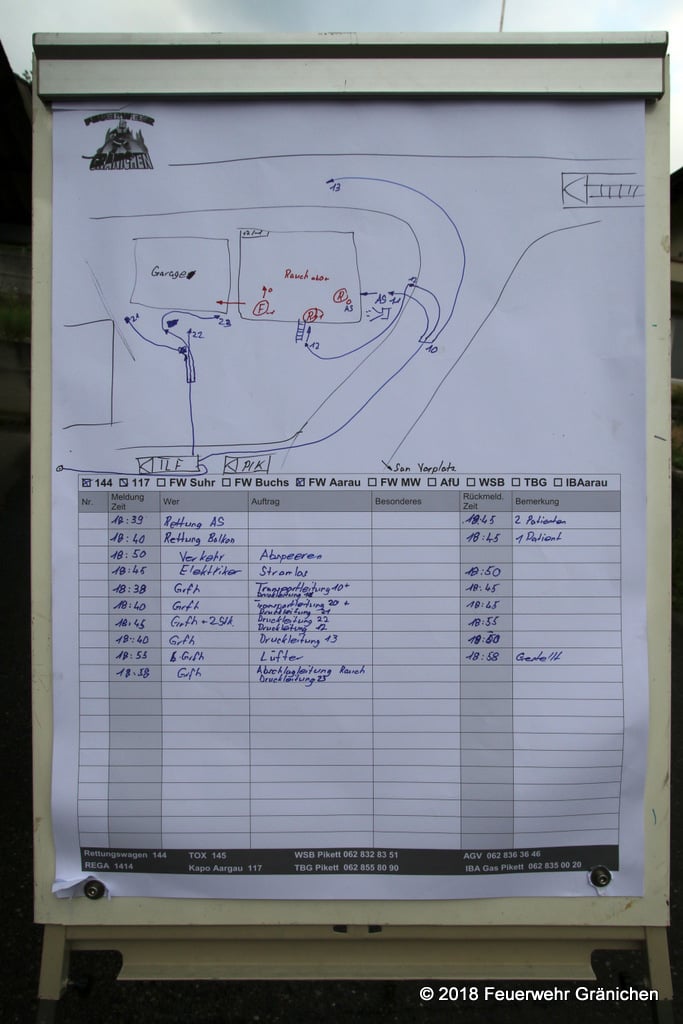 FEUERWEHR
GRÄNICHEN
13
Garage
Rauch
F
R
R
AS
AS
11
21
23
22
12
10
TLF
PIK
San Vorplatz
144 117 FW Suhr FW Buchs FW Aarau FW MW AfU WSB TBG IBAarau
Nr. Meldung Zeit Wer Auftrag Besonderes Rückmeld. Zeit Bemerkung
18:39 Rettung AS 18:45 2 Patienten
18:40 Rettung Balkon 18:45 1 Patient
18:50 Verkehr Absperren
18:45 Elektriker Stromlos 18:50
18:38 Grfh Transportleitung 10 + Druckleitung 18:45
18:40 Grfh Transportleitung 20 + Druckleitung 21 18:45
18:45 Grfh + 2Stk Druckleitung 22 Druckleitung 12 18:55
18:40 Grfh Druckleitung 13 18:50
18:55 Grfh Lüfter 18:58 Gestellt
18:58 Grfh Abschlagleitung Rauch Druckleitung 23
Rettungswagen 144 TOX 145 WSB Pikett 062 832 83 51 AGV 062 836 36 46
REGA 1414 Kapo Aargau 117 TBG Pikett 062 855 80 90 IBA Gas Pikett 062 835 00 20
© 2018 Feuerwehr Gränichen